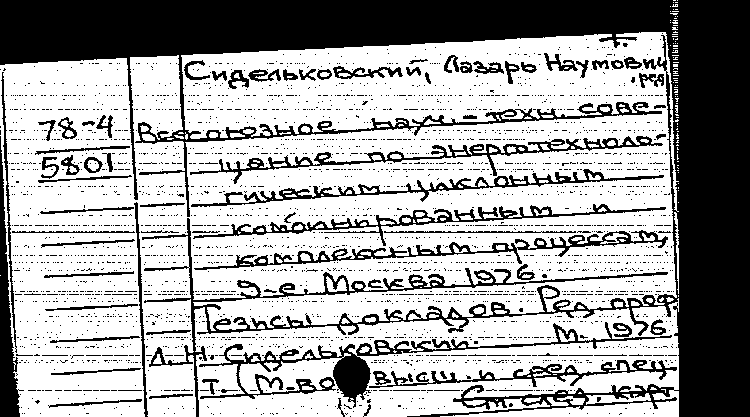 т.
Сидельковский, Лазарь Наумович,
ред.
78-4
5801
Всесоюзное науч.-техн. сове-
щание по энерготехноло-
гическим циклонным
комбинированным и
комплексным процессам,
9-е. Москва. 1976.
Тезисы докладов. Ред. проф.
Л. Н. Сидельковский. М., 1976
т. (М-во высш. и сред. спец.
См. след. карт